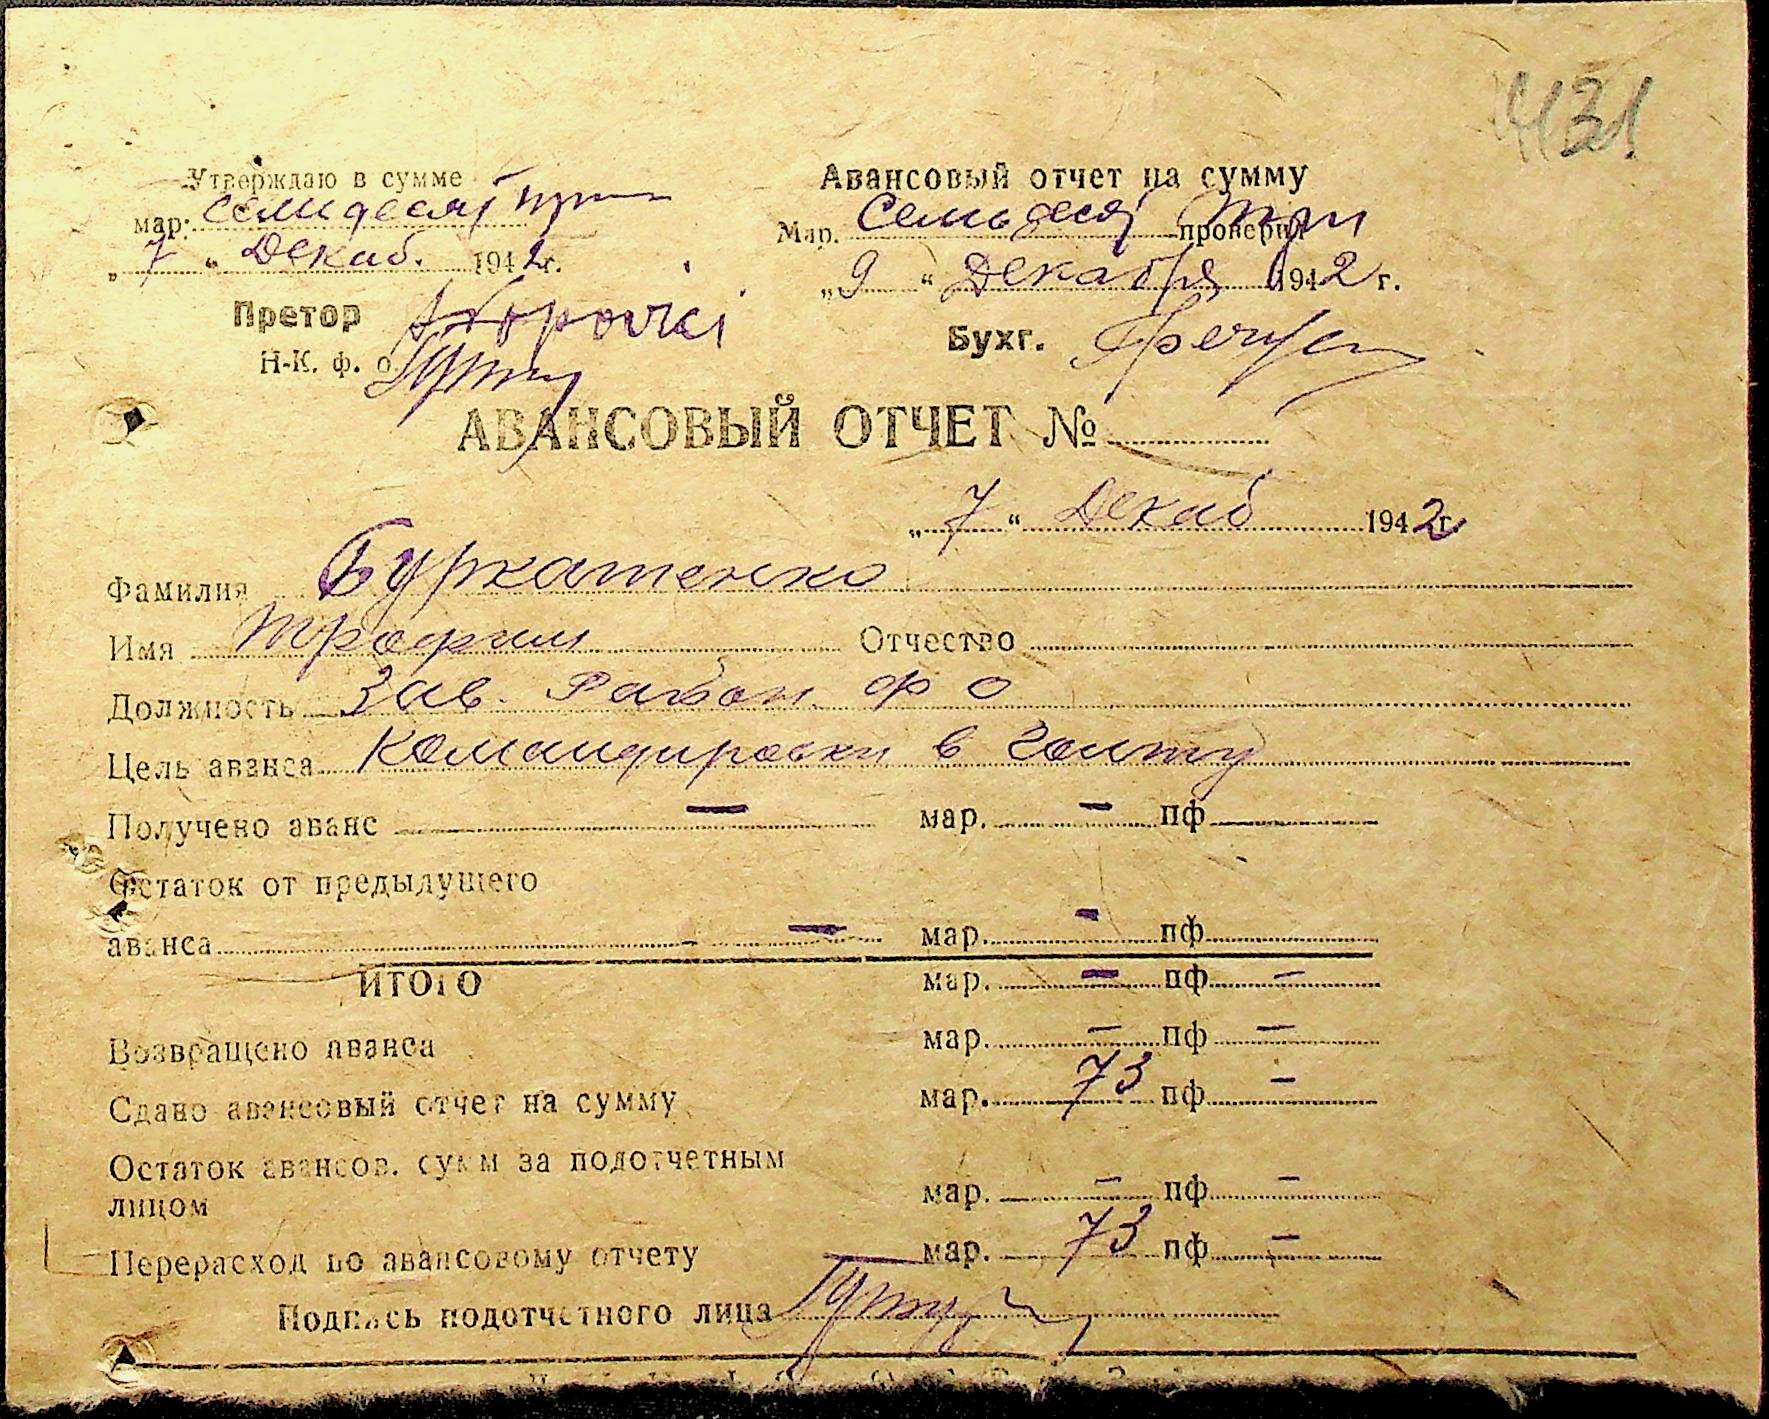 431
Утверждаю в сумме
мар. семидесят три
„7“ Декаб. 1942г.
Претор
Н-К. ф. о.
Авансовый отчет на сумму
Мар. Семьдесят три проверил
„9“ Декабря 1942 г.
Бухг.
АВАНСОВЫЙ ОТЧЕТ №
„7“ Декаб 1942г.
Фамилия Буркатенко
Имя Трофим Отчество
Должность Зав. Район ф о
Цель аванса командировки в Голту
Получено аванс — мар. — пф
Остаток от предыдущего
аванса — мар. - пф
ИТОГО мар. — пф —
Возвращено аванса мар. — пф —
Сдано авансовый отчет на сумму мар. 73 пф —
Остаток авансов. сумм за подотчетным
лицом мар. — пф —
Перерасход по авансовому отчету мар. 73 пф —
Подпись подотчетного лица